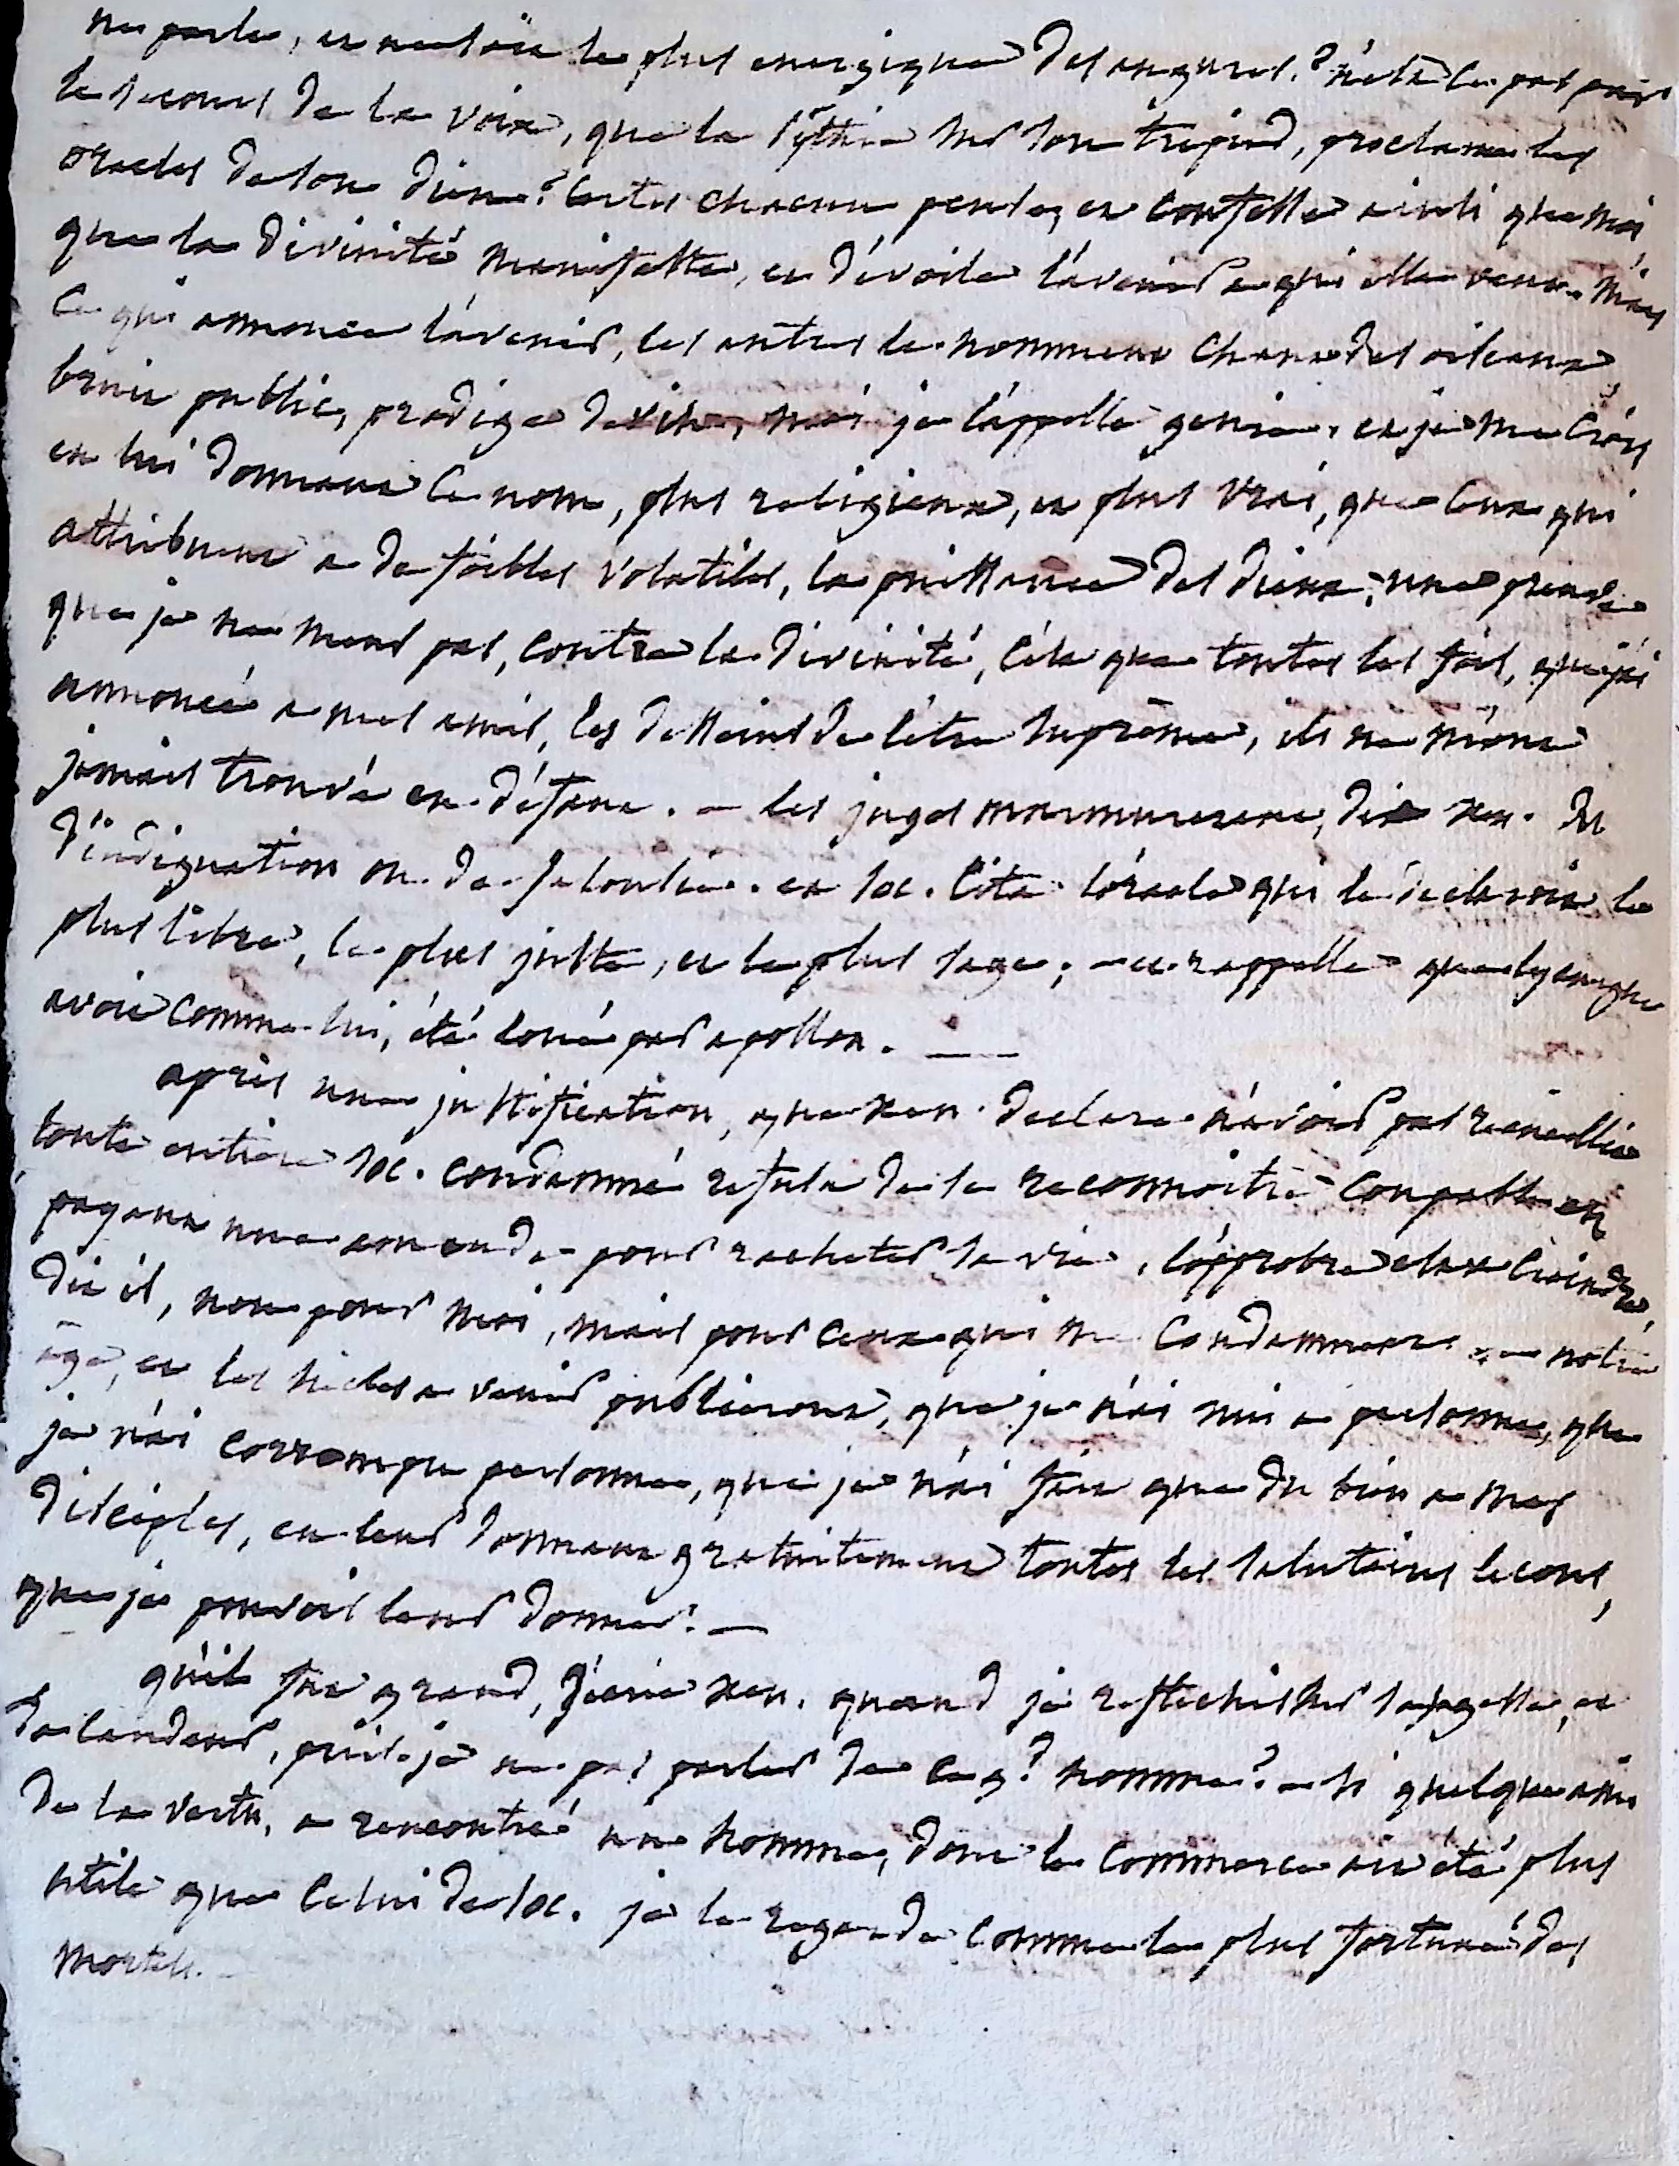 ne parle, et ne soit le plus energique des augures? n'est ce pas par
le secours de la voix, que la Pythie sur son trepied, proclame les
oracles de son dieu? certes chacun pense, et confesse ainsi que moi
que la divinité manifeste, et dévoile l'avenir a qui elle veut. mais
ce qui annonce l'avenir, les autres le nomment chant des oiseaux
bruit public, prodige devin, moi je l'appelle genie, et je me crois
en lui donnant ce nom, plus religieux, et plus vrai, que ceux qui
attribuent a de foibles volatiles, la puissance des dieux; une preuve
que je ne ments pas, contre la divinité, c'est que toutes les fois, que j'ai
annoncé a mes amis, les desseins de l'être suprême, ils ne m'ont
jamais trouvé en défaut. — les juges murmurerent, dit xen. de
d'indignation ou de jalousie. et soc. cita l'oracle qui le déclaroit le
plus libre, le plus juste, et le plus sage; — et rappella que lycurgue
avoit comme lui, été loué par apollon. —
après une justification, que xen. declare n'avoir pas recueillie
toute entiere soc. condamné refusa de se reconnoitre coupable en
payant une amende pour racheter sa vie, l'opprobre est a craindre,
dit il, non pour moi, mais pour ceux qui me condamnent — notre
âge, et les siecles a venir publieront, que je n'ai nui a personne, que
je n'ai corrompu personne, que je n'ai fait que du bien a mes
disciples, en leur donnant gratuitement toutes les salutaires lecons,
que je pouvois leur donner. —
qu'il fut grand, s'écrie xen. quand je reflechis sur sa sagesse, et
sa candeur, puis-je ne pas parler de ce g? homme? — si quelque ami
de la vertu, a rencontré un homme, dont le commerce ait été plus
utile que celui de soc. je le regarde comme le plus fortuné des
mortels. —